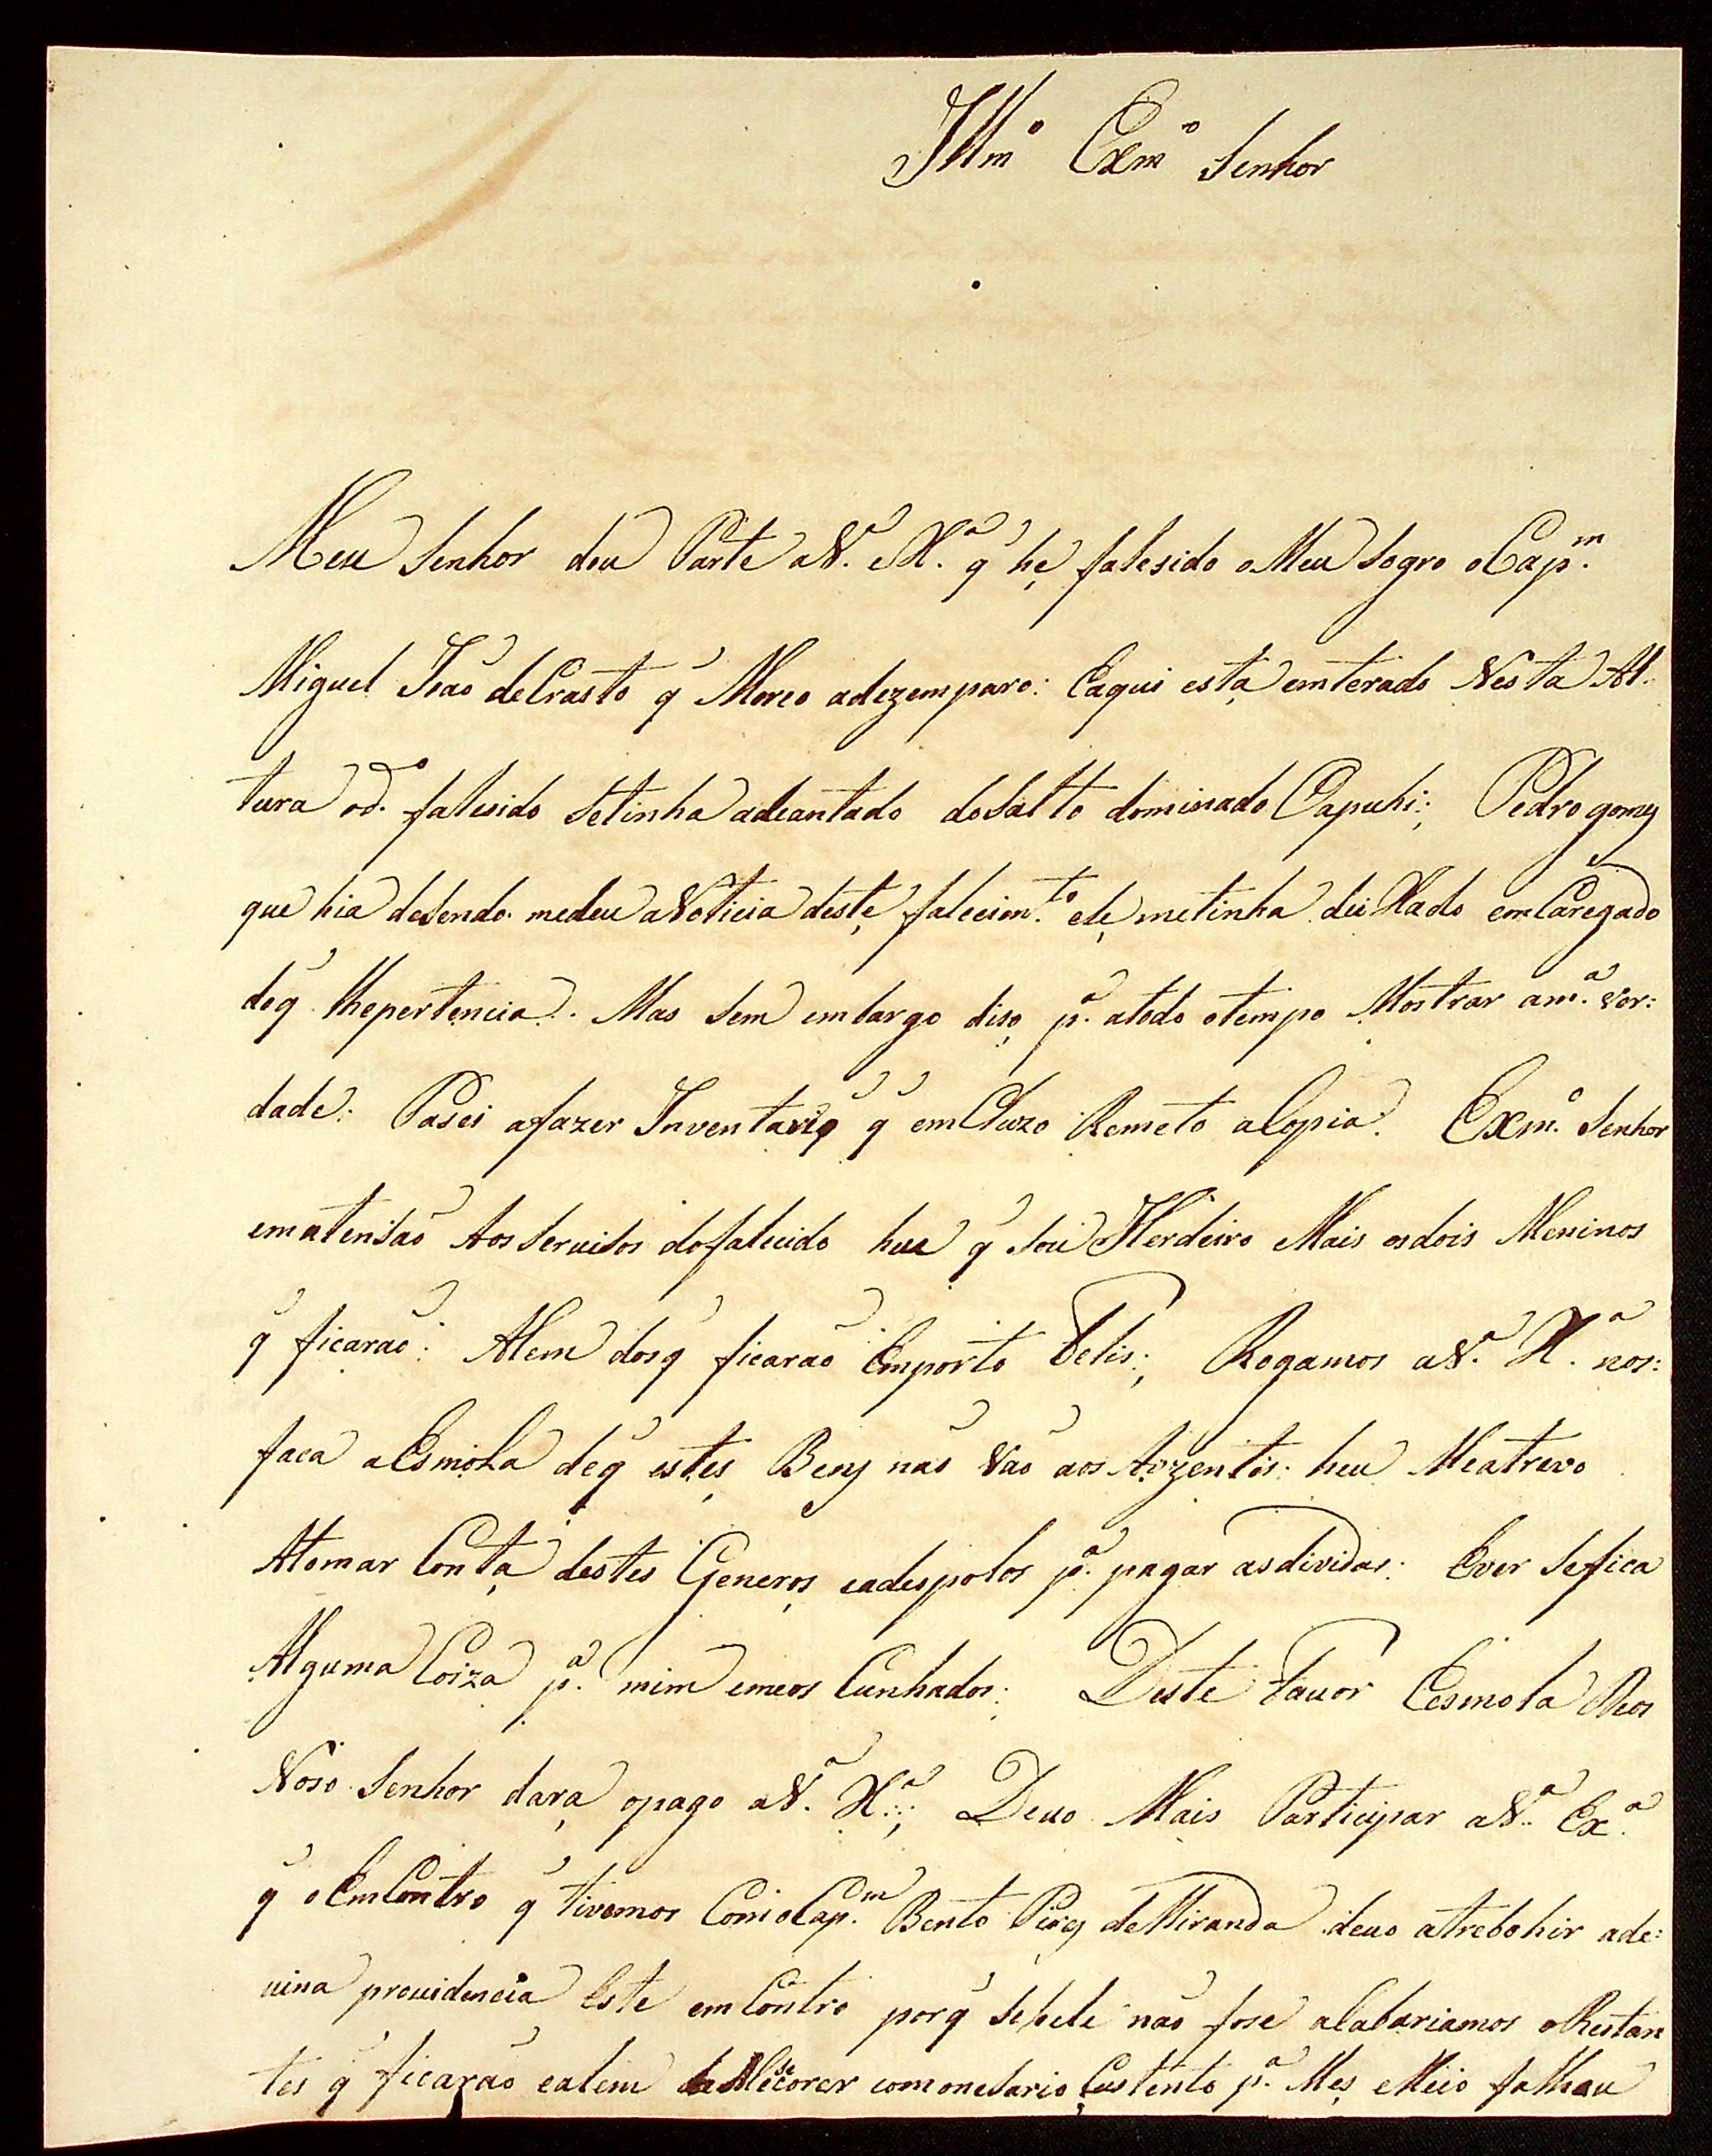 Illmº Exmº Senhor
Meu Senhor dou Parte aVª. Xª. q̃ he falesido oMeu Sogro oCapm.
Miguel Joaõ deCrasto q̃ Moreo adezemparo: Eaqui está emterado Nesta Al-
tura odº. falesido Setinha adeantado doSalto dominado Capuhi:; Pedro gomes
que hia desendo medeu aNoticia deste falecimto. ele metinha deiXado emCaregado
doq̃ lhepertencia. Mas Sem embargo diso pª. atodo otempo Mostrar amª. ver:
dade: Pasei afazer Inventario q̃ emCluzo Remeto aCopia. Exmº. Senhor
ematensaõ Aos Servisos dofalecido heu q̃ Sou Herdeiro Mais osdois Meninos
q̃ ficaraõ: Alem dosq̃ ficaraõ Emporto Felis:; Rogamos aVª. Xª. nos:
faca aEsmola deq̃ estes Bens naõ Vaõ aos Auzentes: heu Meatrevo
Atomar Conta destes Generos eadespolos pª. pagar asdividas: Ever Sefica
Alguma Coiza pª. mim emeos Cunhados: Deste Favor Eesmola Deos
Noso Senhor dará opago aVª. Xª:; Devo Mais Participar aVª. Exª.
q̃ oEmContro q̃ tivemos ComoCapm. Bento Pires deMiranda devo atrebohir ade:
vina providencia Este emContro porq̃ Sehele naõ fose aCabariamos oRestan
tes q̃ ficaraõ ealem Secorer comonesario Custento pª. Mes eMeio falhau